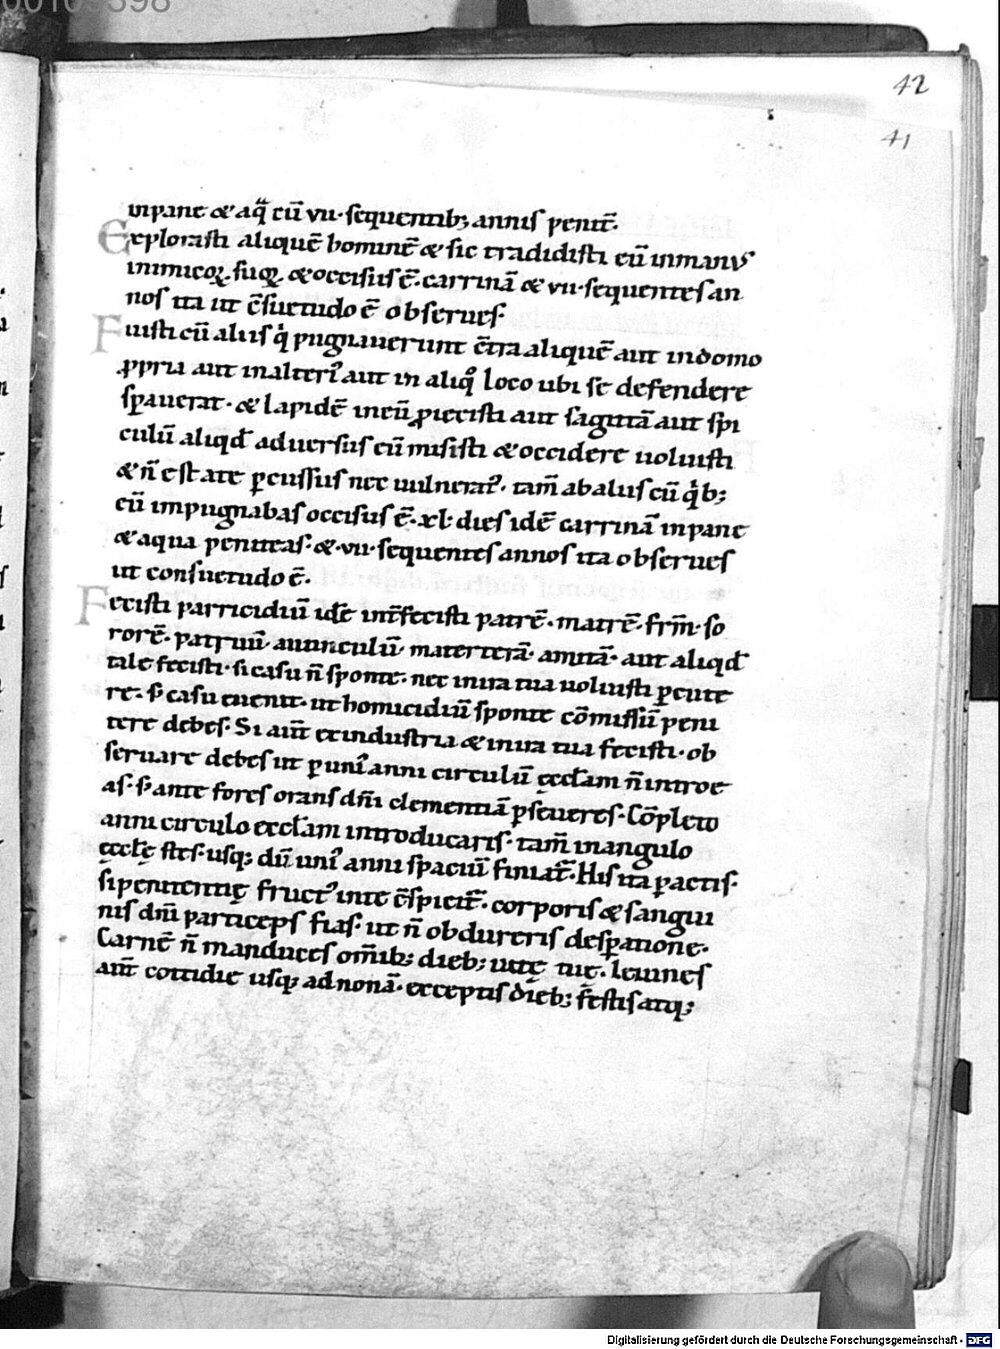 00109398
42
41
inpane & aq̄ cū vii· sequentib; annis penit̄·
Explorasti aliquē hominē & sic tradidisti eū inmanus
inimicoꝝ suoꝝ & occisus ē· carrinā & vii· sequentes an
nos ita ut c̄suetudo ē obserues·
Fuisti cū aliis q̇ pugnauerunt c̄tra aliquē aut indomo
ꝓpria aut inalteri᾽ aut in aliq̊ loco ubi se defendere
sꝑauerat· & lapidē ineū ꝓiecisti aut sagittā aut spi
culū aliqd̄ aduersus eū misisti & occidere uoluisti
& n̄ est ate ꝑcussus nec uulnerat᾽· tam̄ abaliis cū q̇b;
eū impugnabas occisus ē· xl· dies idē carrinā inpane
& aqua peniteas· & vii· sequentes annos ita obserues
ut consuetudo ē·
Fecisti parricidiū idē int̄fecisti patrē· matrē· fr̄m· so
rorē· patruū· auunculū· materterā· amitā· aut aliqd̄
tale fecisti· si casu n̄ sponte· nec inira tua uoluisti ꝑcute
re· s; casu euenit· ut homicidiū sponte cōmissū peni
tere debes· Si aut̄ exindustria & inira tua fecisti· ob
seruare debes ut ꝑ uni᾽ anni circulū ęccl̄am n̄ introe
as· s; ante fores orans dn̄i clementiā ꝑseueres· Cōpleto
anni circulo eccl̄am introducaris· tam̄ inangulo
ęccl̄ę stes· usq; dū uni᾽ anni spaciū finiat᷑· His ita ꝑactis·
si penitentię fruct᾽ inte c̄spicit᷑· corporis & sangui
nis dn̄i particeps fias· ut n̄ obdureris desꝑatione·
Carnē n̄ manduces om̄ib; dieb; uitę tuę· Ieiunes
aut̄ cottidie usq; adnonā· exceptis dieb; festis atq;
Digitalisierung gefördert durch die Deutsche Forschungsgemeinschaft - DFG